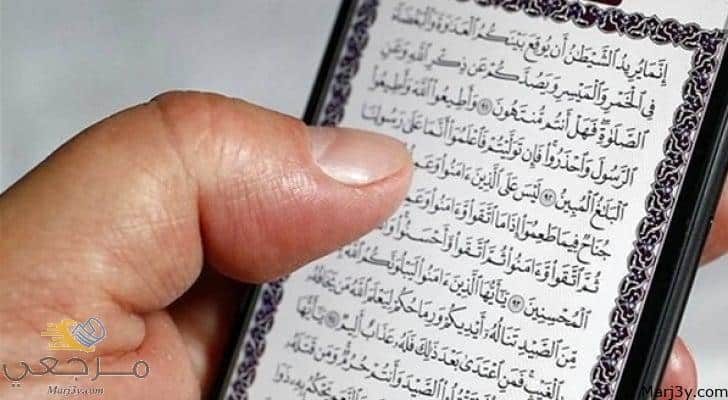 إِنَّمَا يُرِيدُ ٱلشَّيْطَٰنُ أَن يُوقِعَ بَيْنَكُمُ ٱلْعَدَٰوَةَ وَٱلْبَغْضَآءَ
فِي ٱلْخَمْرِ وَٱلْمَيْسِرِ وَيَصُدَّكُمْ عَن ذِكْرِ ٱللَّهِ وَعَنِ
ٱلصَّلَوٰةِ فَهَلْ أَنتُم مُّنتَهُونَ ٩١ وَأَطِيعُوا۟ ٱللَّهَ وَأَطِيعُوا۟
ٱلرَّسُولَ وَٱحْذَرُوا۟ فَإِن تَوَلَّيْتُمْ فَٱعْلَمُوٓا۟ أَنَّمَا عَلَىٰ رَسُولِنَا
ٱلْبَلَٰغُ ٱلْمُبِينُ ٩٢ لَيْسَ عَلَى ٱلَّذِينَ ءَامَنُوا۟
جُنَاحٌ فِيمَا طَعِمُوٓا۟ إِذَا مَا ٱتَّقَوا۟ وَّءَامَنُوا۟
ثُمَّ ٱتَّقَوا۟ وَّءَامَنُوا۟ ثُمَّ ٱتَّقَوا۟ وَّأَحْسَنُوا۟
ٱلْمُحْسِنِينَ ٩٣ يَٰٓأَيُّهَا ٱلَّذِينَ ءَامَنُوا۟ لَيَبْلُوَنَّكُمُ ٱللَّهُ
مِّنَ ٱلصَّيْدِ تَنَالُهُۥٓ أَيْدِيكُمْ وَرِمَاحُكُمْ لِيَعْلَمَ ٱللَّهُ مَن يَخَافُهُۥ
بِٱلْغَيْبِ فَمَنِ ٱعْتَدَىٰ بَعْدَ ذَٰلِكَ فَلَهُۥ عَذَابٌ أَلِيمٌ ٩٤ يَٰٓأَيُّهَا
تَقْتُلُوا۟ ٱلصَّيْدَ وَأَنتُمْ حُرُمٌ وَمَن قَتَلَهُۥ
يَحْكُمُ بِهِۦ ذَوَا
مرجعي
Marj3y.com
Marj3y.com